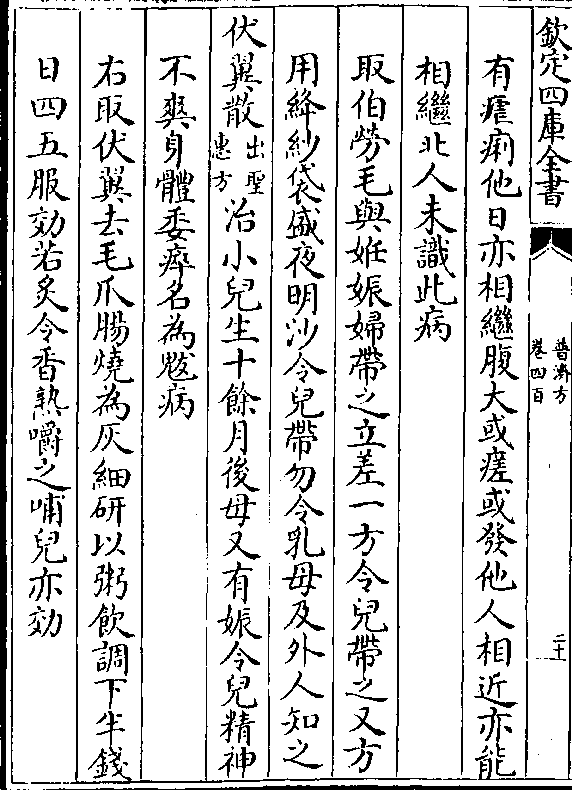 欽定四庫全書
普濟方
卷四百
二十
有瘧痢他日亦相繼腹大或瘥或發他人相近亦能
相繼北人未識此病
取伯勞毛與姙娠婦帶之立差一方令兒帶之又方
用絳紗袋盛夜明沙令兒帶勿令乳母及外人知之
伏翼散出聖惠方治小兒生十餘月後母又有娠令兒精神
不爽身體委瘁名為魃病
右取伏翼去毛爪腸燒為灰細研以粥飲調下半錢
日四五服効若炙令香熟嚼之哺兒亦効